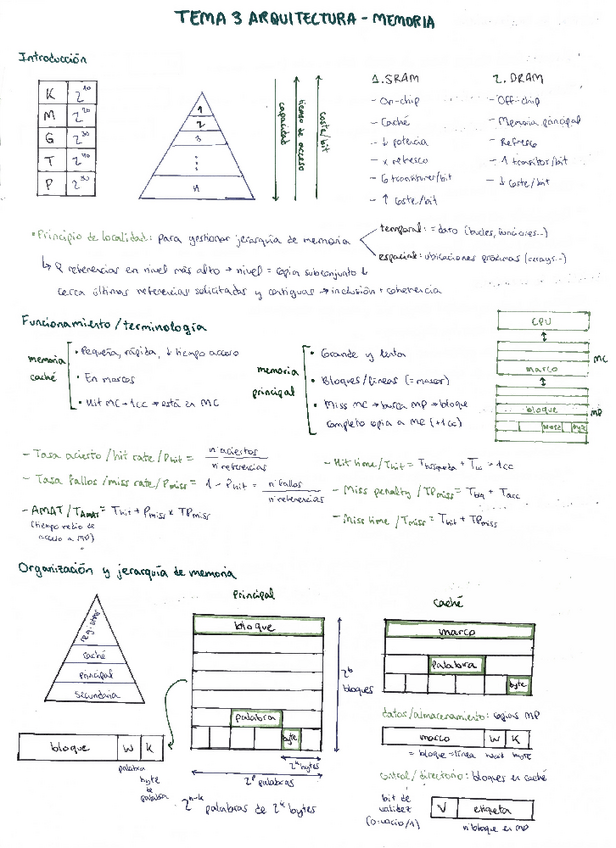 TEMA 3 ARQUITECTURA - MEMORIA
Introducción
K 2^10
M 2^20
G 2^30
T 2^40
P 2^50
1
2
3
⋮
n
capacidad
tiempo de acceso
coste/bit
1. SRAM
- On-chip
- Caché
- ↓ potencia
- x refresco
- 6 transistores/bit
- ↑ coste/bit
2. DRAM
- Off-chip
- Memoria principal
- Refresco
- 1 transistor/bit
- ↓ coste/bit
• Principio de localidad: para gestionar jerarquía de memoria
temporal: = dato (bucles, funciones..)
espacial: ubicaciones próximas (arrays..)
↳ referencias en nivel más alto → nivel = copia subconjunto ↓
cerca últimas referencias solicitadas y contiguas → inclusión + coherencia
Funcionamiento/terminología
memoria caché
• Pequeña, rápida, ↓ tiempo acceso
• En marcos
• Hit MC → 1cc → está en MC
memoria principal
• Grande y lenta
• Bloques/líneas (= marcos)
• Miss MC → busca MP → bloque
completo copia a MC (+1cc)
CPU
marco
MC
bloque
MP
- Tasa acierto/hit rate/Phit = nº aciertos / nº referencias
- Tasa fallos/miss rate/Pmiss = 1 - Phit = nº fallos / nº referencias
- AMAT/TAMAT = Thit + Pmiss x TPmiss
(tiempo medio de
acceso a MP)
- Hit time/Thit = Tbúsqueda + = 1cc
- Miss penalty/TPmiss = + Tacc
- Miss time/Tmiss = Thit + TPmiss
Organización y jerarquía de memoria
registros
caché
principal
secundaria
bloque W K
palabra
byte
de
palabra
Principal
bloque
palabra
byte
2^b
bloques
2^k bytes
2^p palabras
2^n-k palabras de 2^k bytes
Caché
marco
palabra
byte
datos/almacenamiento: copias MP
marco W K
= bloque = línea word byte
control/directorio: bloques en caché
bit de
validez
(0-vacío/1)
V etiqueta
nº bloque en MP